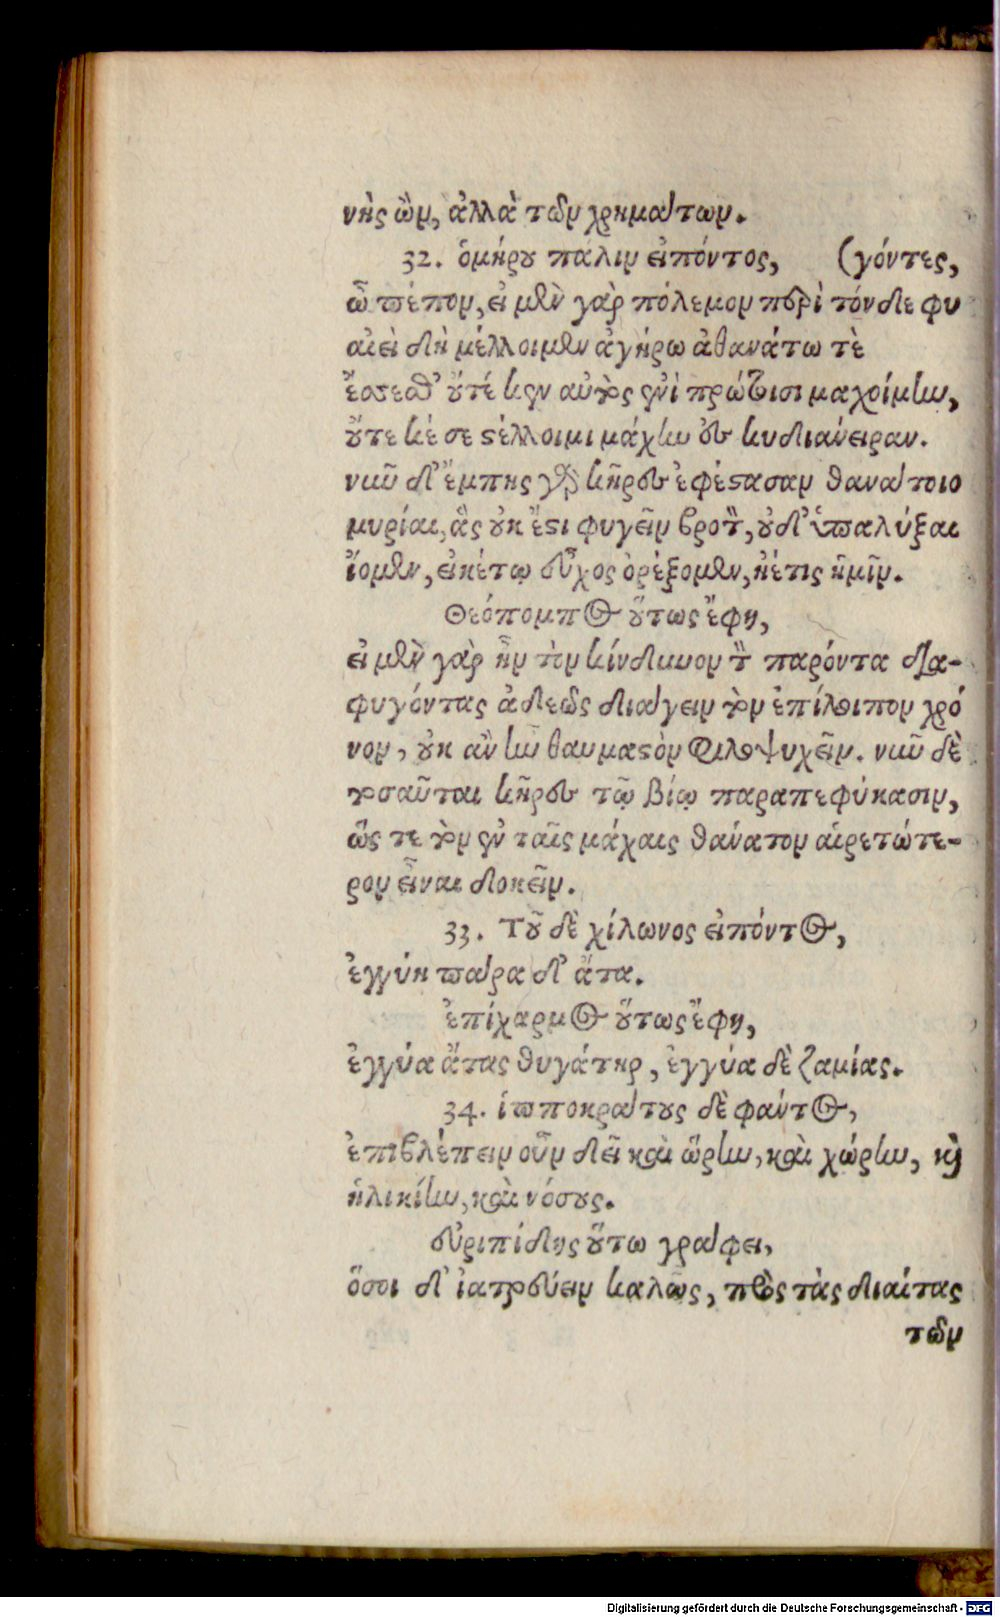 νὴς ὢν, ἀλλὰ τῶν χρημάτων.
32. ὁμήρου πάλιν εἰπόντος, (γόντες,
ὦ πέπον, εἰ μὲν γὰρ πόλεμον περὶ τόνδε φυ
αἰεὶ δὴ μέλλοιμεν ἀγήρω ἀθανάτω τὲ
ἔσσεσθ' οὔτέ κεν αὐτὸς ἐνὶ πρώτοισι μαχοίμην,
οὔτε κέ σε στέλλοιμι μάχην ἐς κυδιάνειραν.
νῦν δ' ἔμπης γὰρ κῆρες ἐφέστασαν θανάτοιο
μυρίαι, ἃς οὐκ ἔστι φυγεῖν βροτὸν, οὐδ' ὑπαλύξαι
ἴομεν, εἰκέτῳ εὖχος ὀρέξομεν, ἠέτις ἡμῖν.
Θεόπομπος οὕτως ἔφη,
εἰ μὲν γὰρ ἦν τὸν κίνδυνον τὸν παρόντα δια-
φυγόντας ἀδεῶς διάγειν τὸν ἐπίλοιπον χρό
νον, οὐκ ἂν ἦν θαυμαστὸν φιλοψυχεῖν. νῦν δὲ
τοσαῦται κῆρες τῷ βίῳ παραπεφύκασιν,
ὥς τε τὸν ἐν ταῖς μάχαις θάνατον αἱρετώτε-
ρον εἶναι δοκεῖν.
33. Τοῦ δὲ χίλωνος εἰπόντος,
ἐγγύη πάρα δ' ἄτα.
ἐπίχαρμος οὕτως ἔφη,
ἐγγύα ἄτας θυγάτηρ, ἐγγύα δὲ ζαμίας.
34. ἱπποκράτους δὲ φάντος,
ἐπιβλέπειν οὖν δεῖ καὶ ὥρην, καὶ χώρην, καὶ
ἡλικίην, καὶ νόσους.
εὐριπίδης οὕτω γράφει,
ὅσοι δ' ἰατρεύειν καλῶς, πρὸς τὰς διαίτας
τῶν
Digitalisierung gefördert durch die Deutsche Forschungsgemeinschaft - DFG